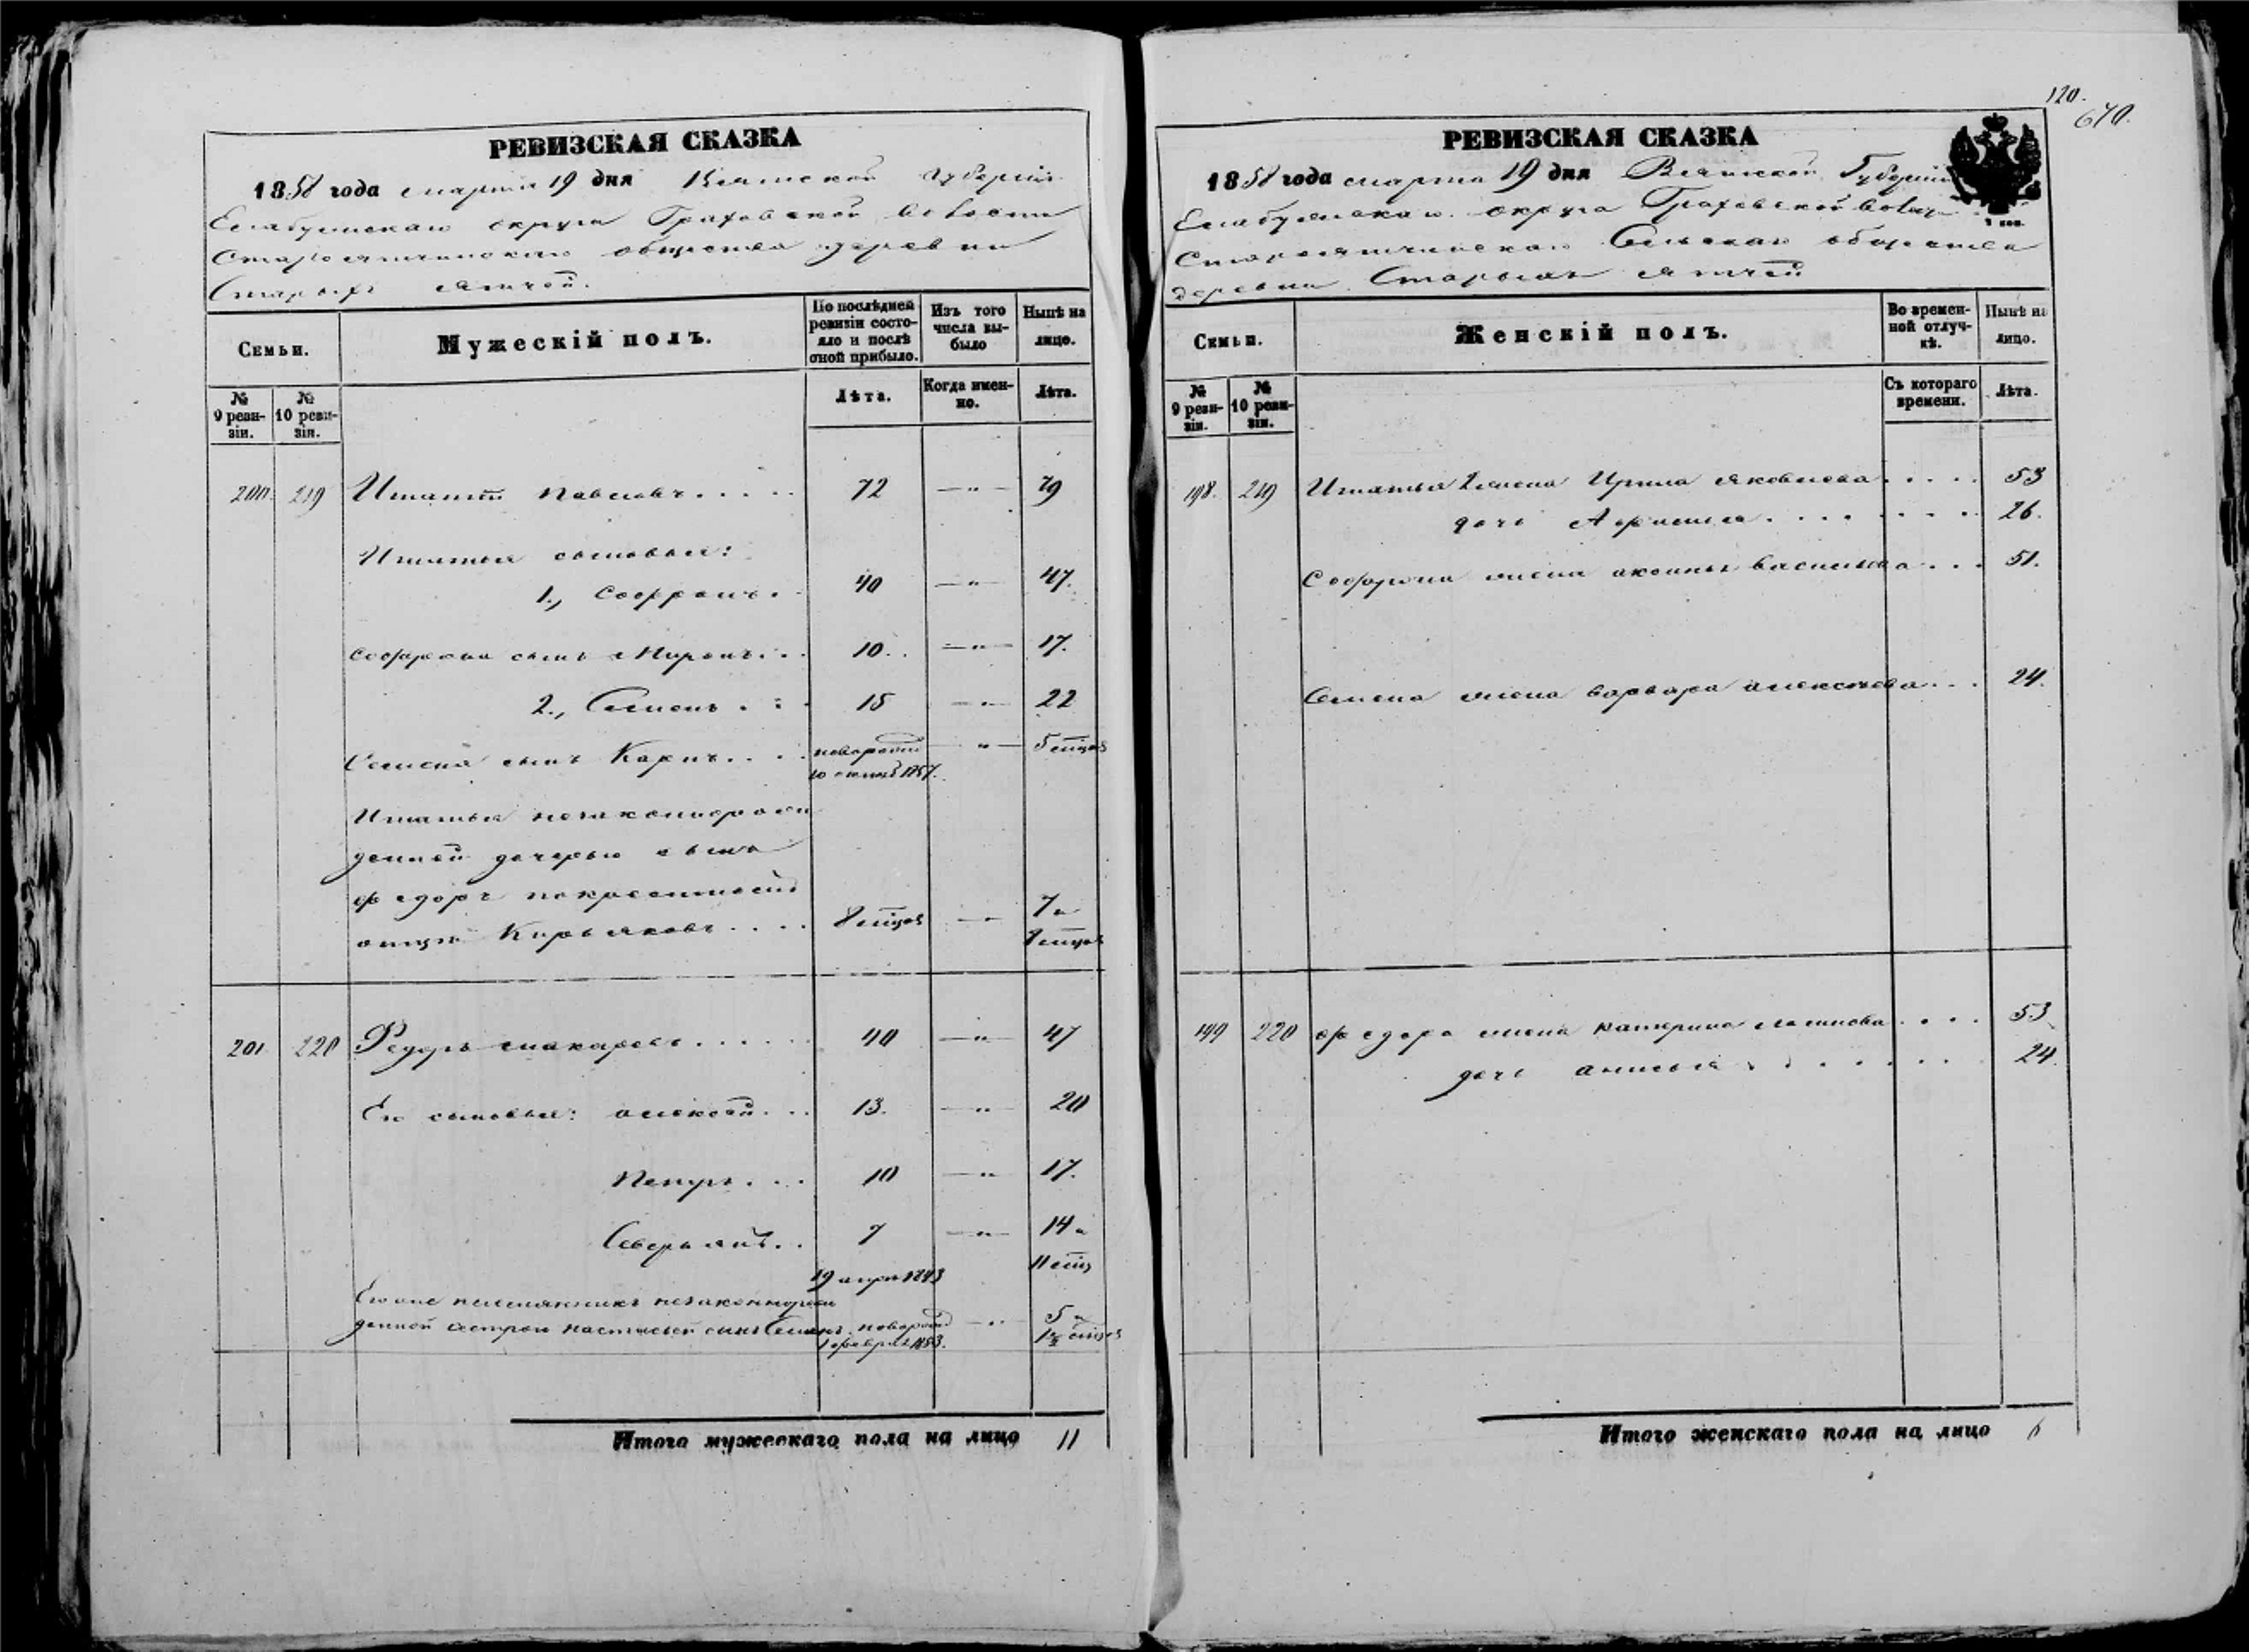 РЕВИЗСКАЯ СКАЗКА
1858 года марта 19 дня Вятской Губернiи
Елабужскаго округа Граховской волости
Староятчинскаго общества деревни
Старыхъ Ятчей.
Семьи.
Мужескiй полъ.
По послѣдней ревизiи состояло и послѣ оной прибыло.
Изъ того числа выбыло
Нынѣ на лицо.
№ 9 ревизiи.
№ 10 ревизiи.
Лѣта.
Когда именно.
Лѣта.
200. 219 Игнатiй Павловъ..... 72 —"— 79
Игнатья сыновья:
1., Софронъ. 40 —"— 47.
Софрона сынъ Миронъ... 10.. —"— 17.
2., Семенъ. : . 15 —"— 22
Семена сынъ Карпъ.... новорожд —"— 5 мѣцов
1857.
Игнатья незаконнорож
денной дочерью сынъ
федоръ
отцу .... 8 мѣцов —"— 7 и
8 мѣцов
201. 220 Федоръ Макаровъ...... 40 —"— 47
Его сыновья: алексѣй... 13. —"— 20
Петръ.... 10 —"— 17.
Северьянъ.. 7 —"— 14 и
19 апрл 1843 11 мѣц
Его же племянникъ незаконнорож
денной сестрой настасьей сынъ Семенъ. новорожд —"— 5 и
1 февраля 1853.
Итого мужескаго пола на лицо 11
120.
670.
РЕВИЗСКАЯ СКАЗКА
1858 года марта 19 дня Вятской Губернiи
Елабужскаго округа Граховской волости
Староятчинскаго Сельскаго общества
деревни Старыхъ Ятчей
Семьи.
Женскiй полъ.
Во временной отлучкѣ.
Нынѣ на лицо.
№ 9 ревизiи.
№ 10 ревизiи.
Съ котораго времени.
Лѣта.
198. 219 Игнатья жена Ирина Яковлева.... 53
дочь ........ 26.
Софрона жена васильева... 51.
Семена жена варвара алексѣева... 24.
199 220 федора жена катерина логинова.... 53
дочь анисья........ 24.
Итого женскаго пола на лицо 6